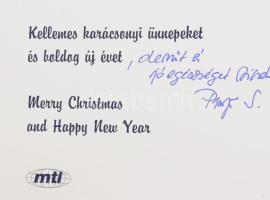 Kellemes karácsonyi ünnepeket
és boldog új évet, derűt és
jó egészséget
Merry Christmas
and Happy New Year
mtl